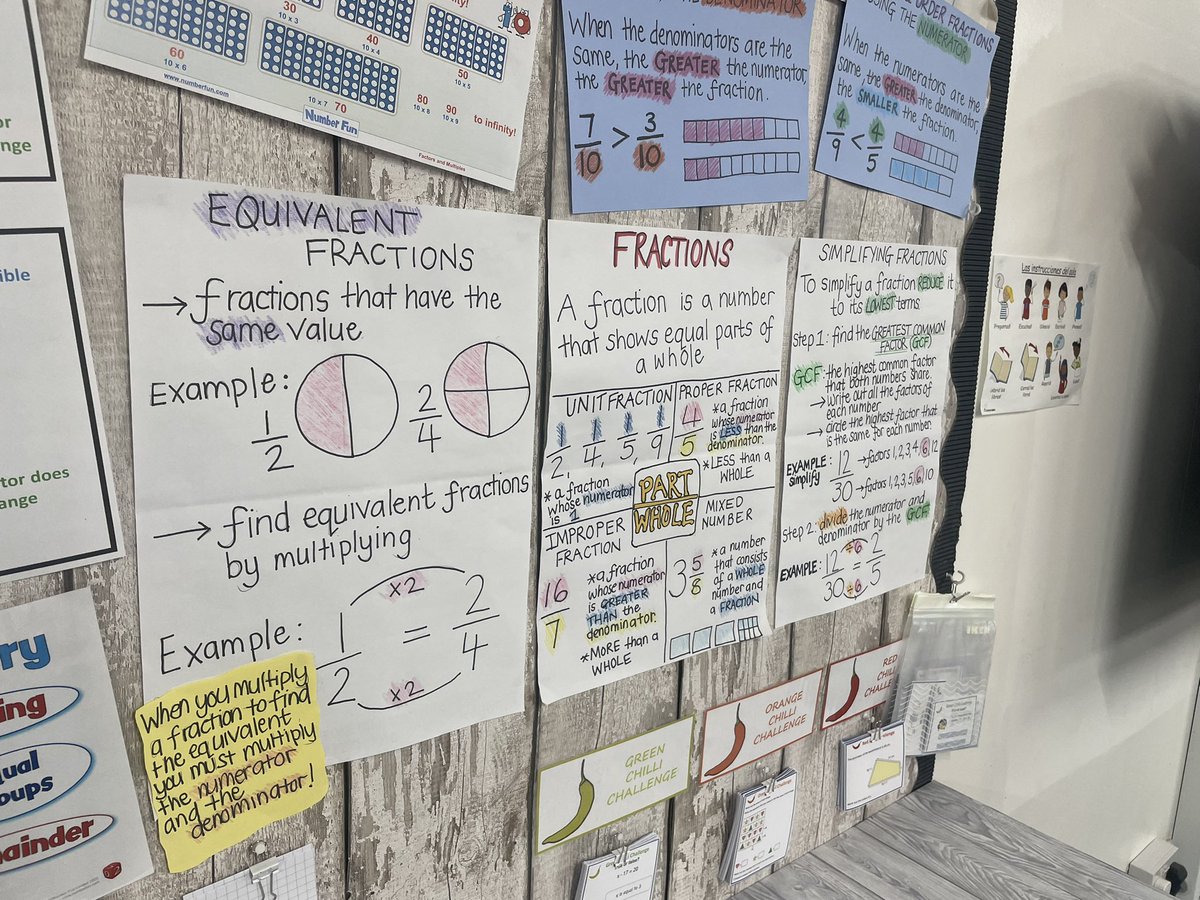 30
10 x 3
40
10 x 4
50
10 x 5
60
10 x 6
www.numberfun.com
10 x 7 70
80
10 x 8
90
10 x 9
to infinity!
Number Fun
Factors and Multiples
DENOMINATOR
When the denominators are the
same, the GREATER the numerator,
the GREATER the fraction.
7/10 > 3/10
ORDER FRACTIONS
USING THE NUMERATOR
When the numerators are the
same, the GREATER the denominator,
the SMALLER the fraction.
4/9 < 4/5
EQUIVALENT
FRACTIONS
→ fractions that have the
same value
Example:
1/2
2/4
→ find equivalent fractions
by multiplying
Example: 1/2 = 2/4
x2
x2
When you multiply
a fraction to find
the equivalent
you must multiply
the numerator
and the
denominator!
FRACTIONS
A fraction is a number
that shows equal parts of
a whole
UNIT FRACTION
1/2, 1/4, 1/5, 1/9
* a fraction
whose numerator
is 1
PROPER FRACTION
4/5
* a fraction
whose numerator
is LESS than the
denominator.
* LESS than a
WHOLE.
PART
WHOLE
IMPROPER
FRACTION
16/7
* a fraction
whose numerator
is GREATER
THAN the
denominator.
* MORE than a
WHOLE
MIXED
NUMBER
3 5/8
* a number
that consists
of a WHOLE
number and
a FRACTION
SIMPLIFYING FRACTIONS
To simplify a fraction REDUCE it
to its LOWEST terms.
step 1: find the GREATEST COMMON
FACTOR (GCF)
GCF: the highest common factor
that both numbers share.
→ Write out all the factors of
each number
→ circle the highest factor that
is the same for each number.
EXAMPLE:
simplify
12/30
→ factors 1,2,3,4,6,12
→ factors 1,2,3,5,6,10
step 2: divide the numerator and
denominator by the GCF
EXAMPLE: 12/30 = 2/5
÷6
÷6
Las instrucciones del aula
GREEN
CHILLI
CHALLENGE
ORANGE
CHILLI
CHALLENGE
RED
CHILLI
CHALLE
ange
ible
ator does
ange
ry
ing
ual
oups
ainder